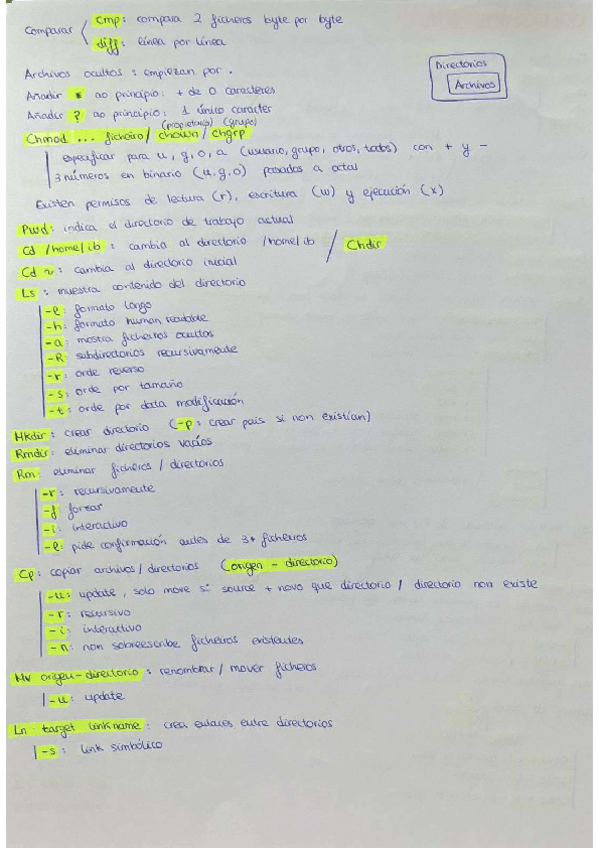 Comparar
Cmp: compara 2 ficheros byte por byte
diff: línea por línea
Archivos ocultos: empiezan por .
Directorios
Archivos
Añadir * ao principio: + de 0 caracteres
Añadir ? ao principio: 1 único carácter
(propietario) (grupo)
Chmod ... ficheiro / chown / chgrp
especificar para u, g, o, a (usuario, grupo, otros, todos) con + y -
3 números en binario (u, g, o) pasados a octal
Existen permisos de lectura (r), escritura (w) y ejecución (x)
Pwd: indica el directorio de trabajo actual
Cd /home/ib: cambia al directorio /home/ib / Chdir
Cd ~: cambia al directorio inicial
Ls: muestra contenido del directorio
-l: formato longo
-h: formato human readable
-a: mostra ficheiros ocultos
-R: subdirectorios recursivamente
-r: orde reverso
-s: orde por tamaño
-t: orde por data modificación
Mkdir: crear directorio (-p: crear pais si non existían)
Rmdir: eliminar directorios vacíos
Rm: eliminar ficheros / directorios
-r: recursivamente
-f: forzar
-i: interactivo
-l: pide confirmación antes de 3+ ficheiros
Cp: copiar archivos / directorios (origen - directorio)
-u: update, solo move si source + novo que directorio / directorio non existe
-r: recursivo
-i: interactivo
-n: non sobreescribe ficheiros existentes
Mv origen-directorio: renombrar / mover ficheros
-u: update
Ln target linkname: crea enlaces entre directorios
-s: link simbólico